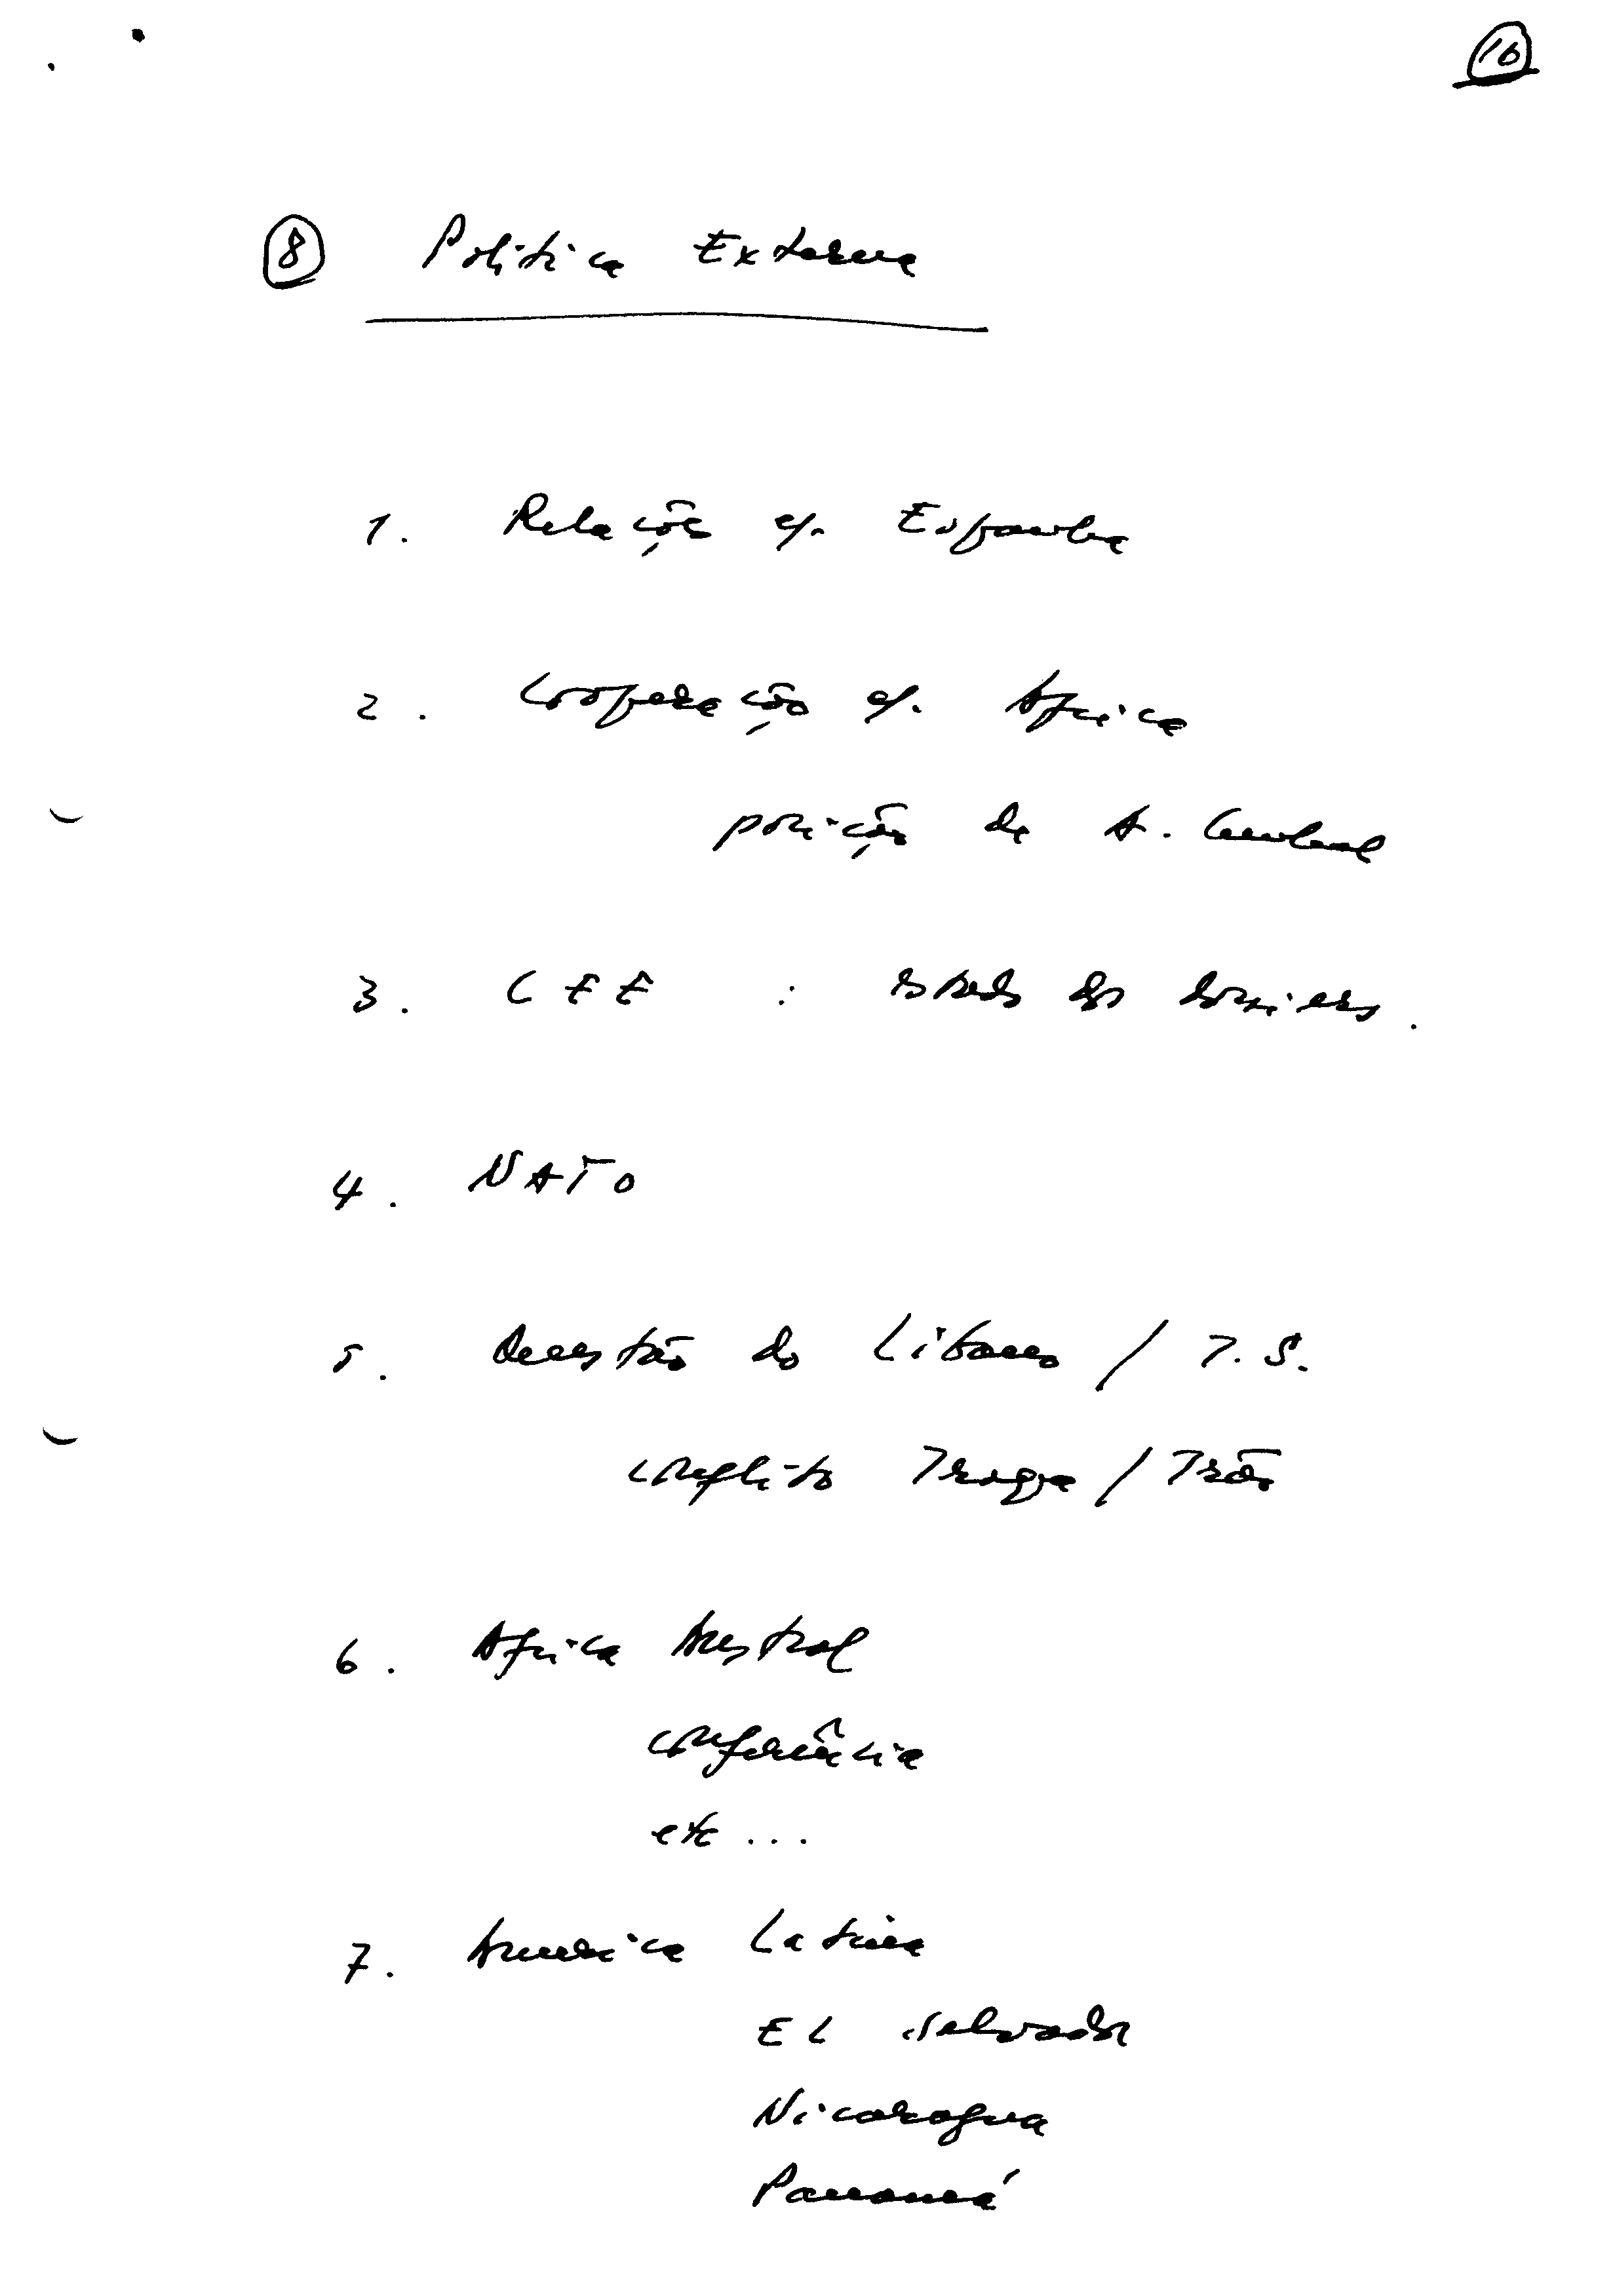 16
8 Politica Externa
1. Relações c/. Espanha
2. Cooperação c/. Africa
posição de A. Cunhal
3. CEE : estado dos dossiers.
4. NATO
5. Questão do Libano / I.S.
conflito Iraque / Irão
6. Africa Austral
conferência
etc ...
7. America Latina
EL Salvador
Nicaragua
Panamá